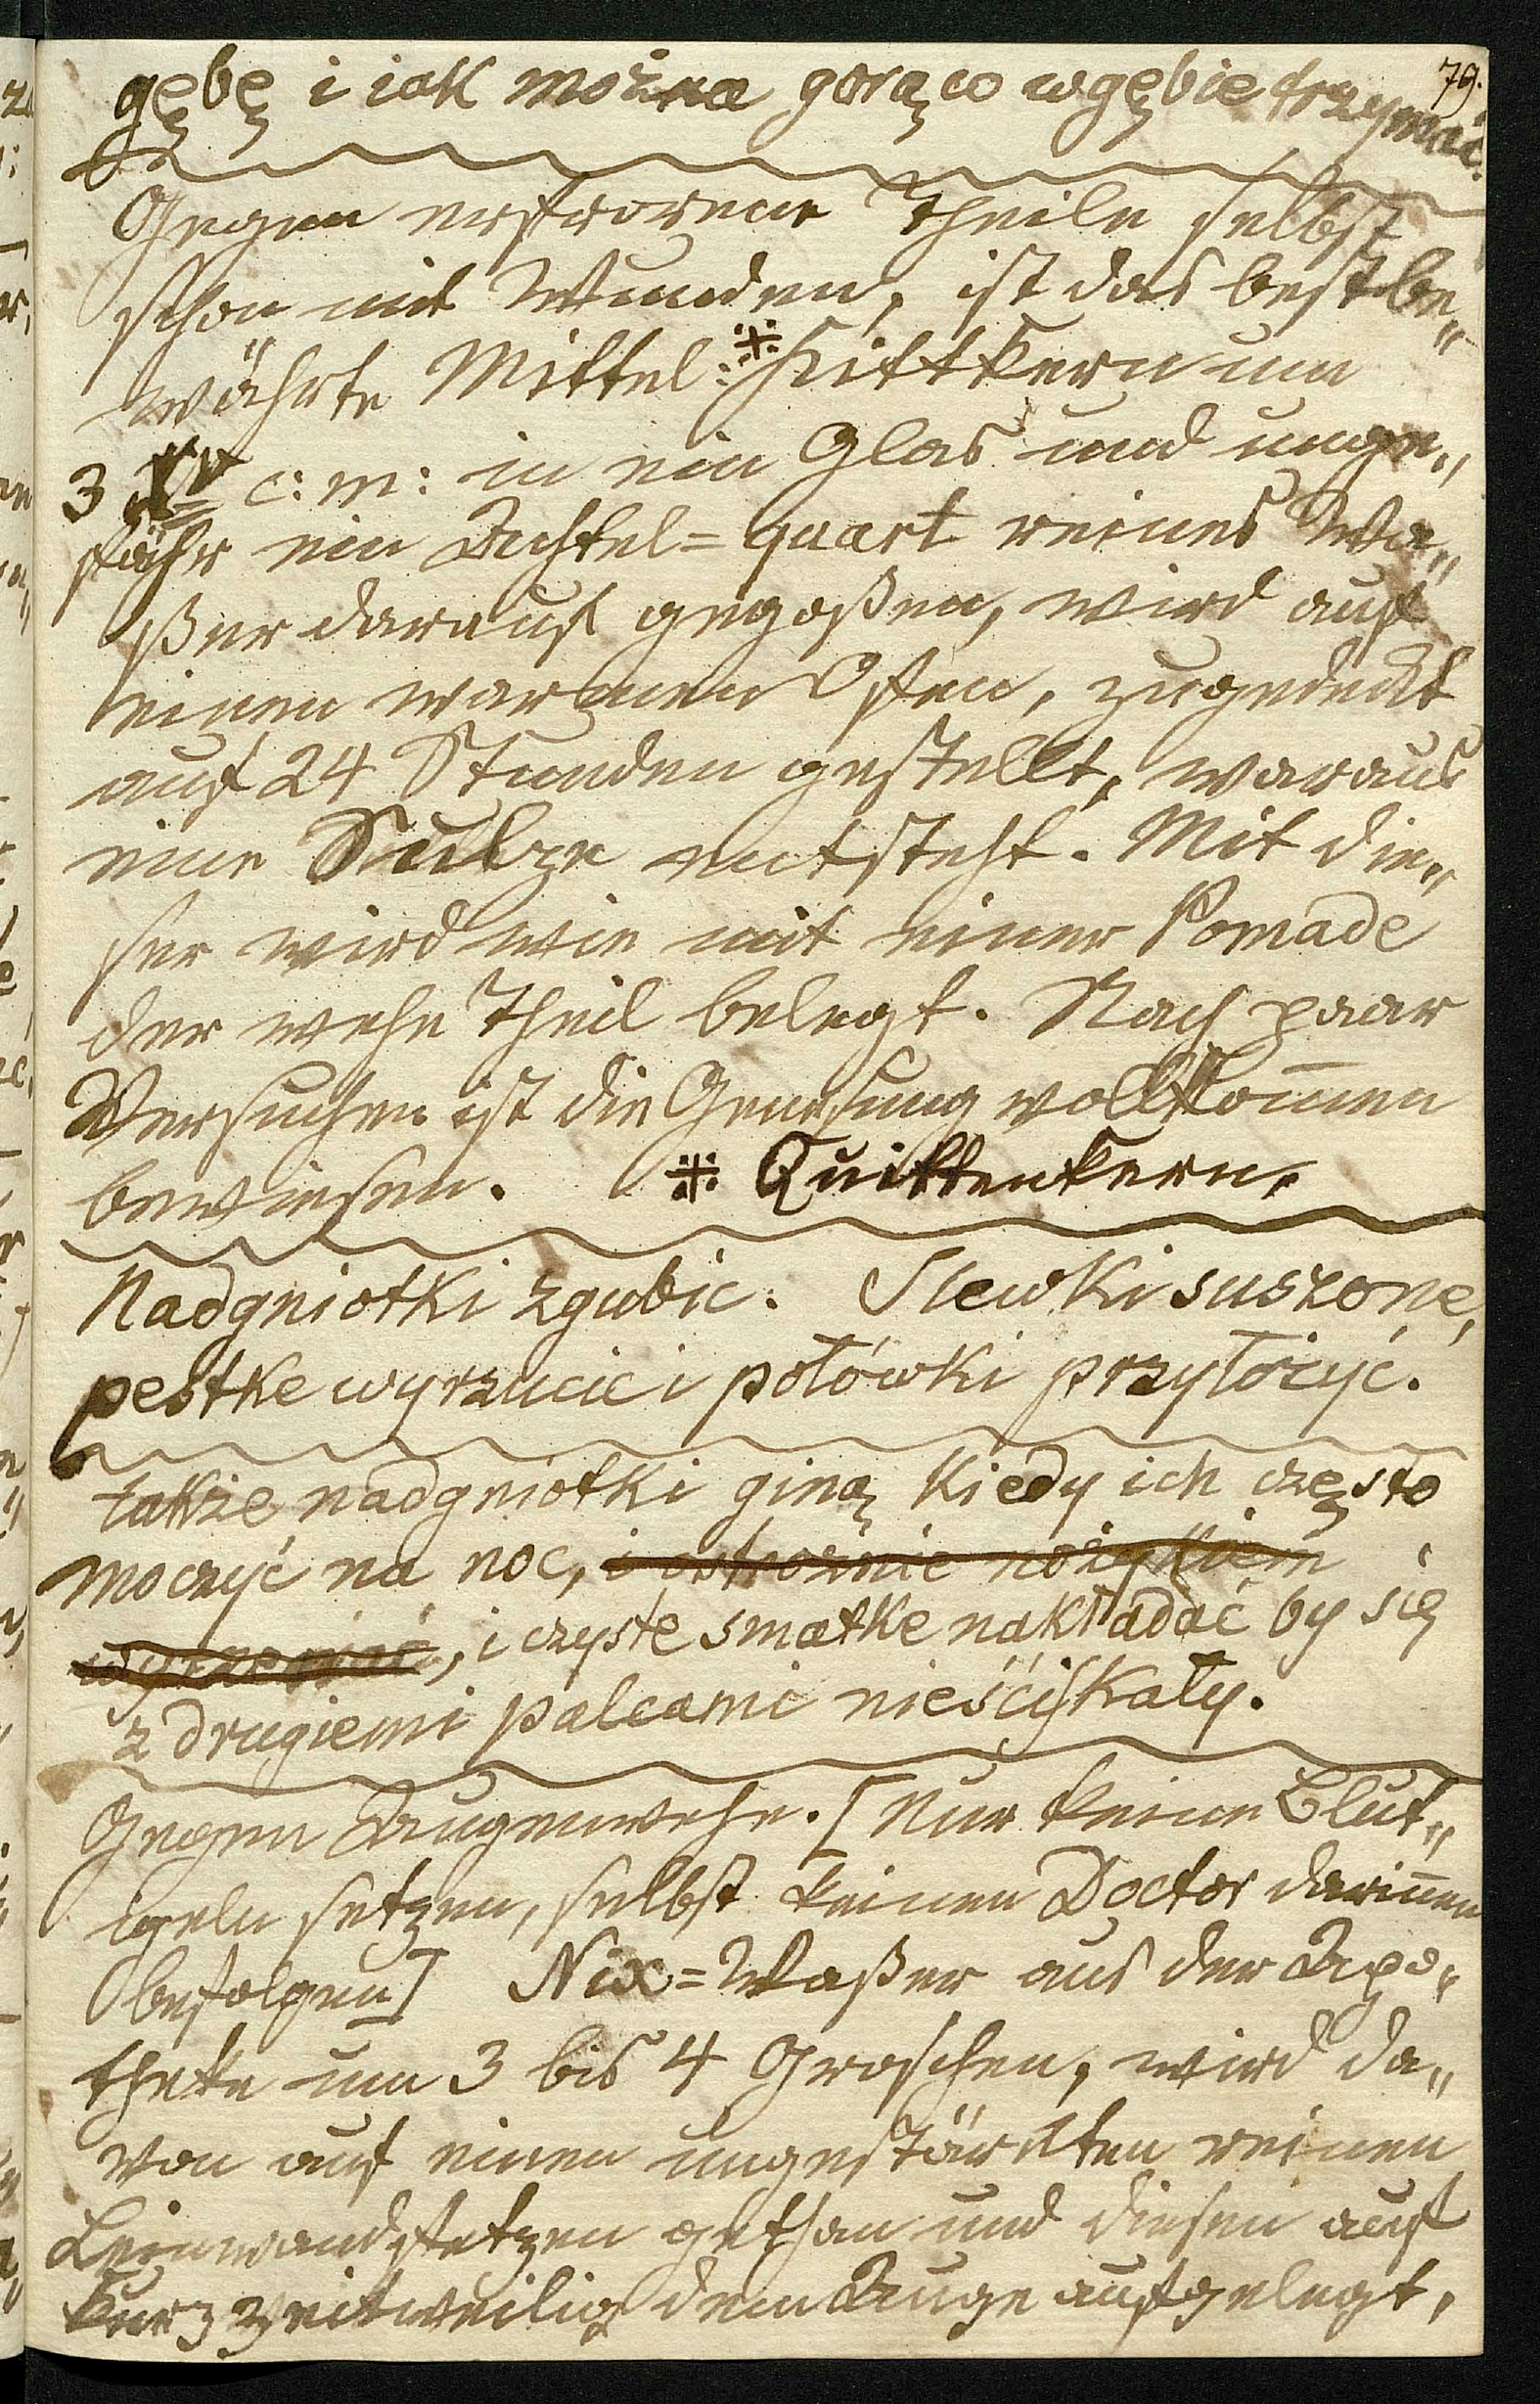 79.
gębę i iak można gorąco w gębie trzymać.
Gegen erfrorene Theile selbst
schon mit Wunden, ist das best be„
währte Mittel: ※ Kittkern um
3 Xr c: m: in ein Glas und unge„
fähr ein Achtel=quart reines Wa„
ßer darauf gegoßen, wird auf
einen warmen Ofen, zugedeckt
auf 24 Stunden gestellt, woraus
eine Sulze entsteht. Mit die„
ser wird wie mit einer Pomade
der wehe Theil belegt. Nach paar
Versuchen ist die Genesung vollkom̄en
bewiesen. ※ Quittenkern.
Nadgniotki zgubic. Slewki suszone,
pestke wyrzucic i połówki przyłozyc.
także nadgniotki giną kiedy ich często
moczyć na noc, i ostrożnie nożykiem
, i czyste smatke nakładać by się
z drugiemi palcami nieściskały.
Gegen Augenwehe. [Nur keine Blut„
igeln setzen, selbst keinen Doctor darin̄en
befolgen] Nix=Waßer aus der Apo„
theke um 3 bis 4 Groschen, wird da„
von auf einen ungestärkten reinen
Leinwandfetzen gethan und diesen auf
kurz zeitweilig dem Auge aufgelegt,